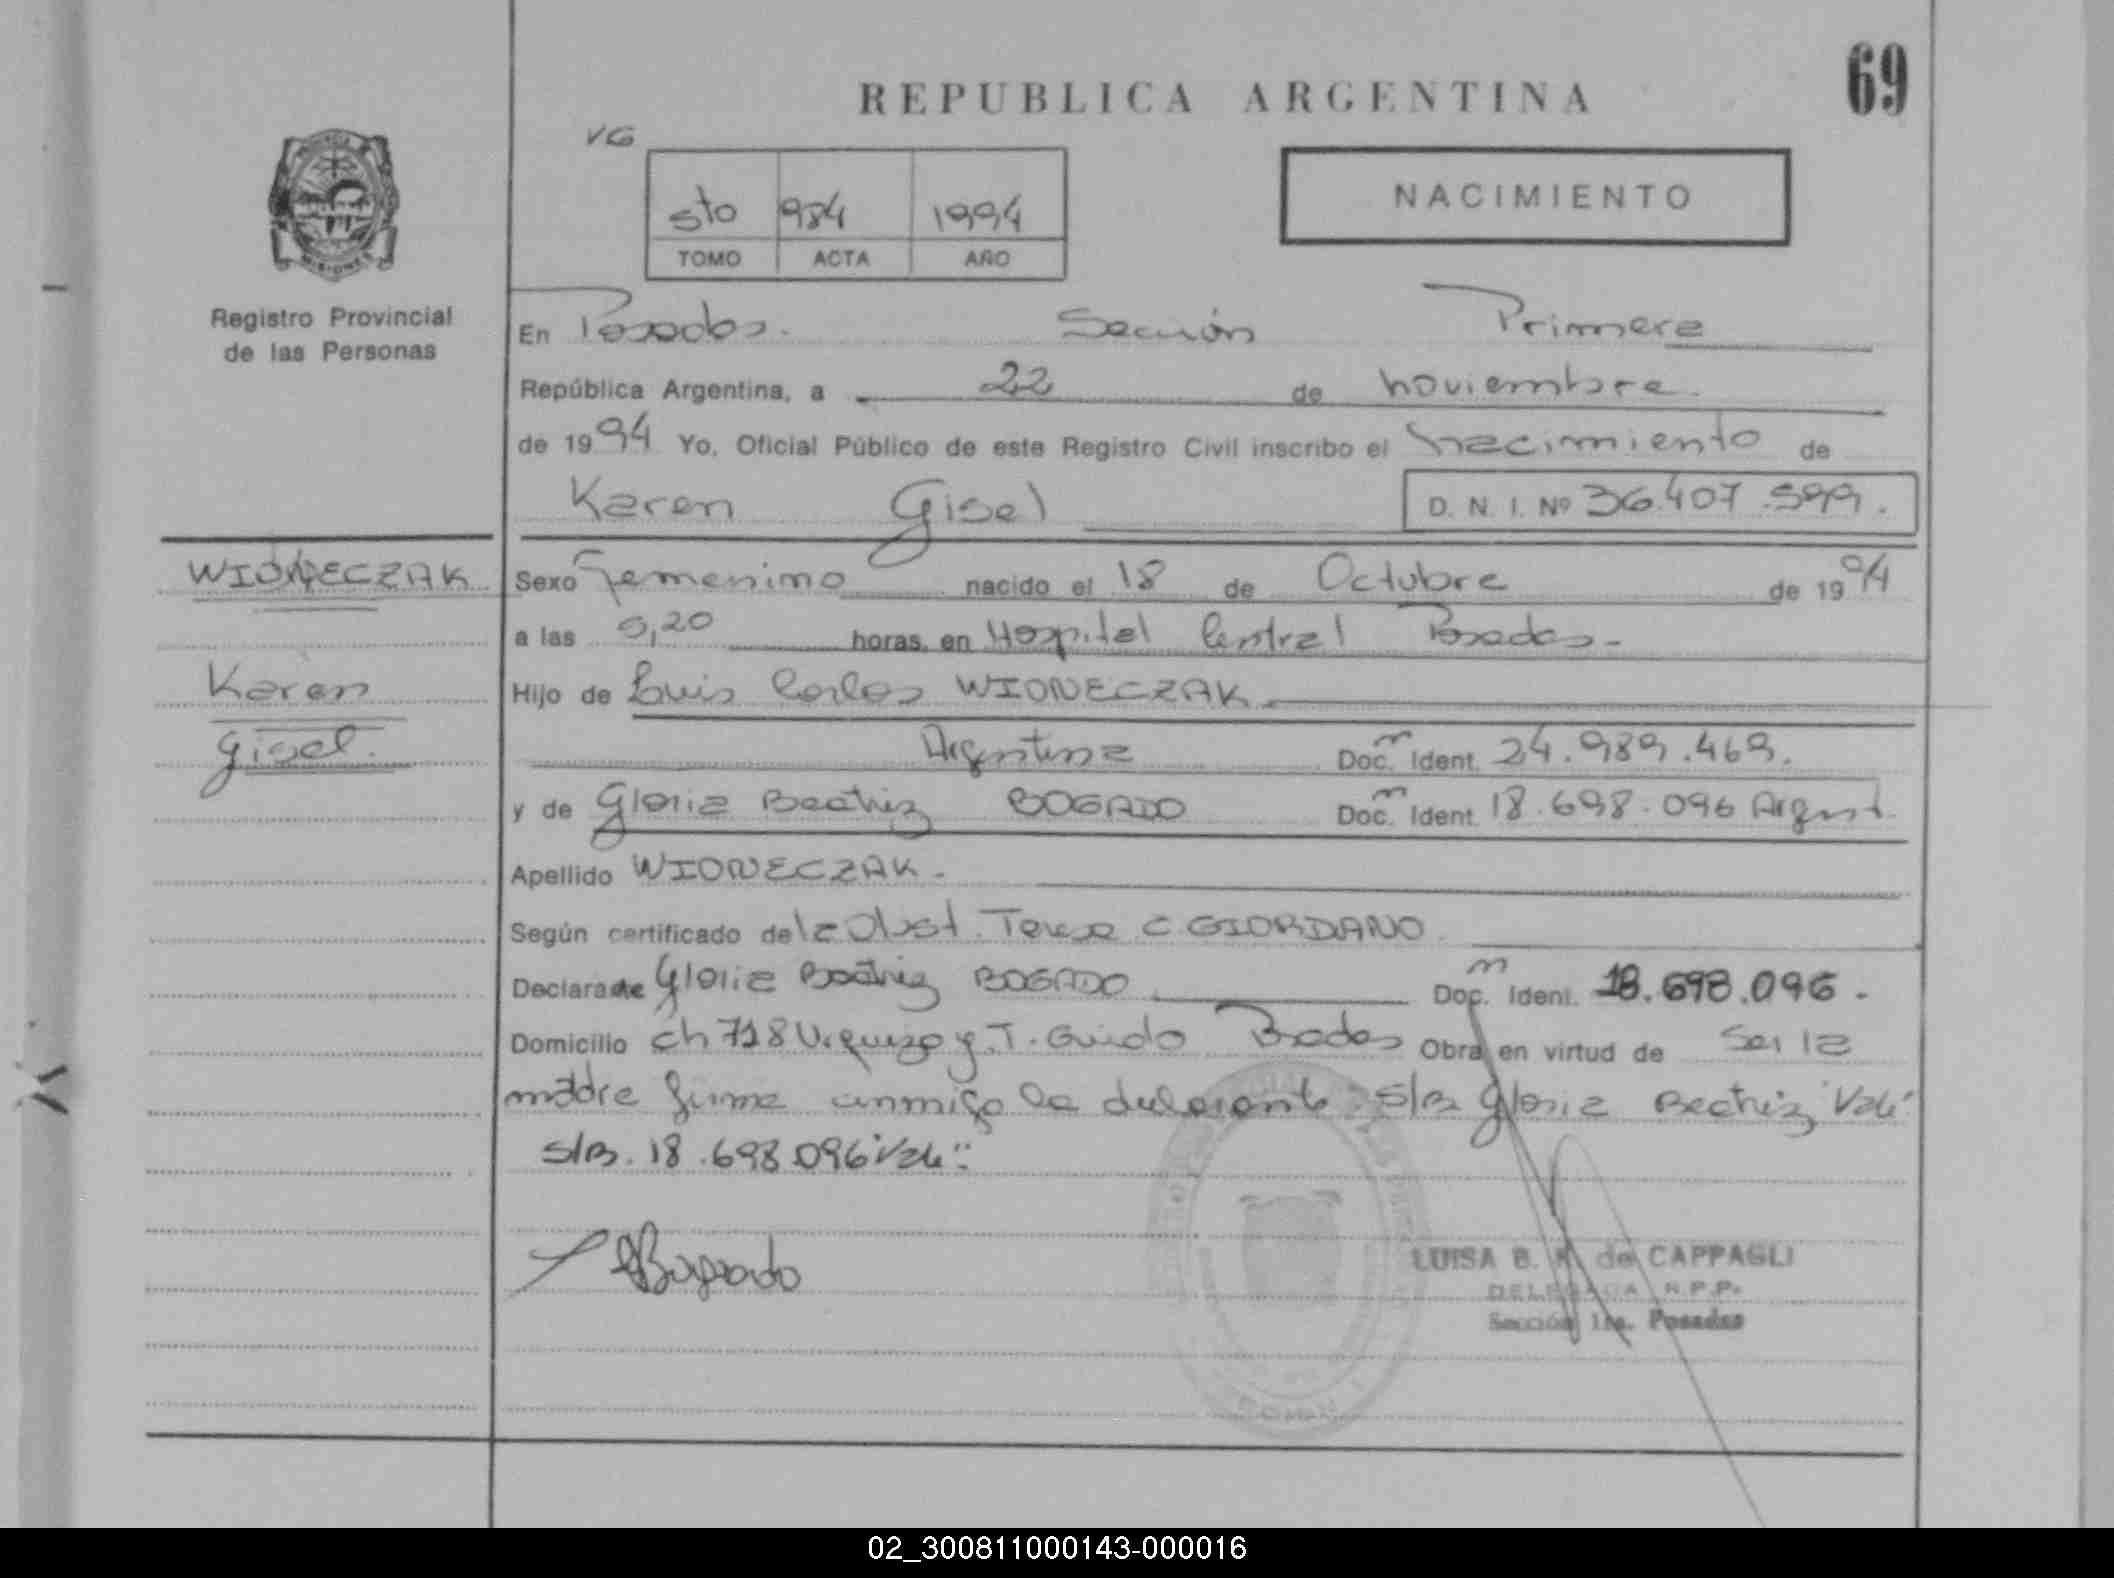 69
REPUBLICA ARGENTINA
VG
5to 984 1994
TOMO ACTA AÑO
NACIMIENTO
MISIONES
Registro Provincial
de las Personas
En Posadas. Sección Primera
República Argentina, a 22 de noviembre.
de 1994 Yo, Oficial Público de este Registro Civil inscribo el nacimiento de
Karen Gisel D. N. I. Nº 36.407.599.
WIONECZAK
Karen
Gisel.
Sexo Femenino nacido el 18 de Octubre de 1994
a las 9,20 horas, en Hospital Central Posadas.-
Hijo de Luis Carlos WIONECZAK
Argentina Doc. Ident. 24.989.469.
y de Gloria Beatriz BOGADO Doc. Ident. 18.698.096 Argent.
Apellido WIONECZAK.
Según certificado de la Obst. Teresa C GIORDANO
Declarante Gloria Beatriz BOGADO Doc. Ident. 18.698.096.-
Domicilio Ch 718 Urquiza y T. Guido Posadas Obra en virtud de Ser la
madre firma conmigo la declarante. S/B Gloria Beatriz "Vale"
S/B. 18.698.096 "Vale":
GBogado
LUISA B. de CAPPAGLI
DELEGADA R.P.P.
Sección 1ra. Posadas
02_300811000143-000016